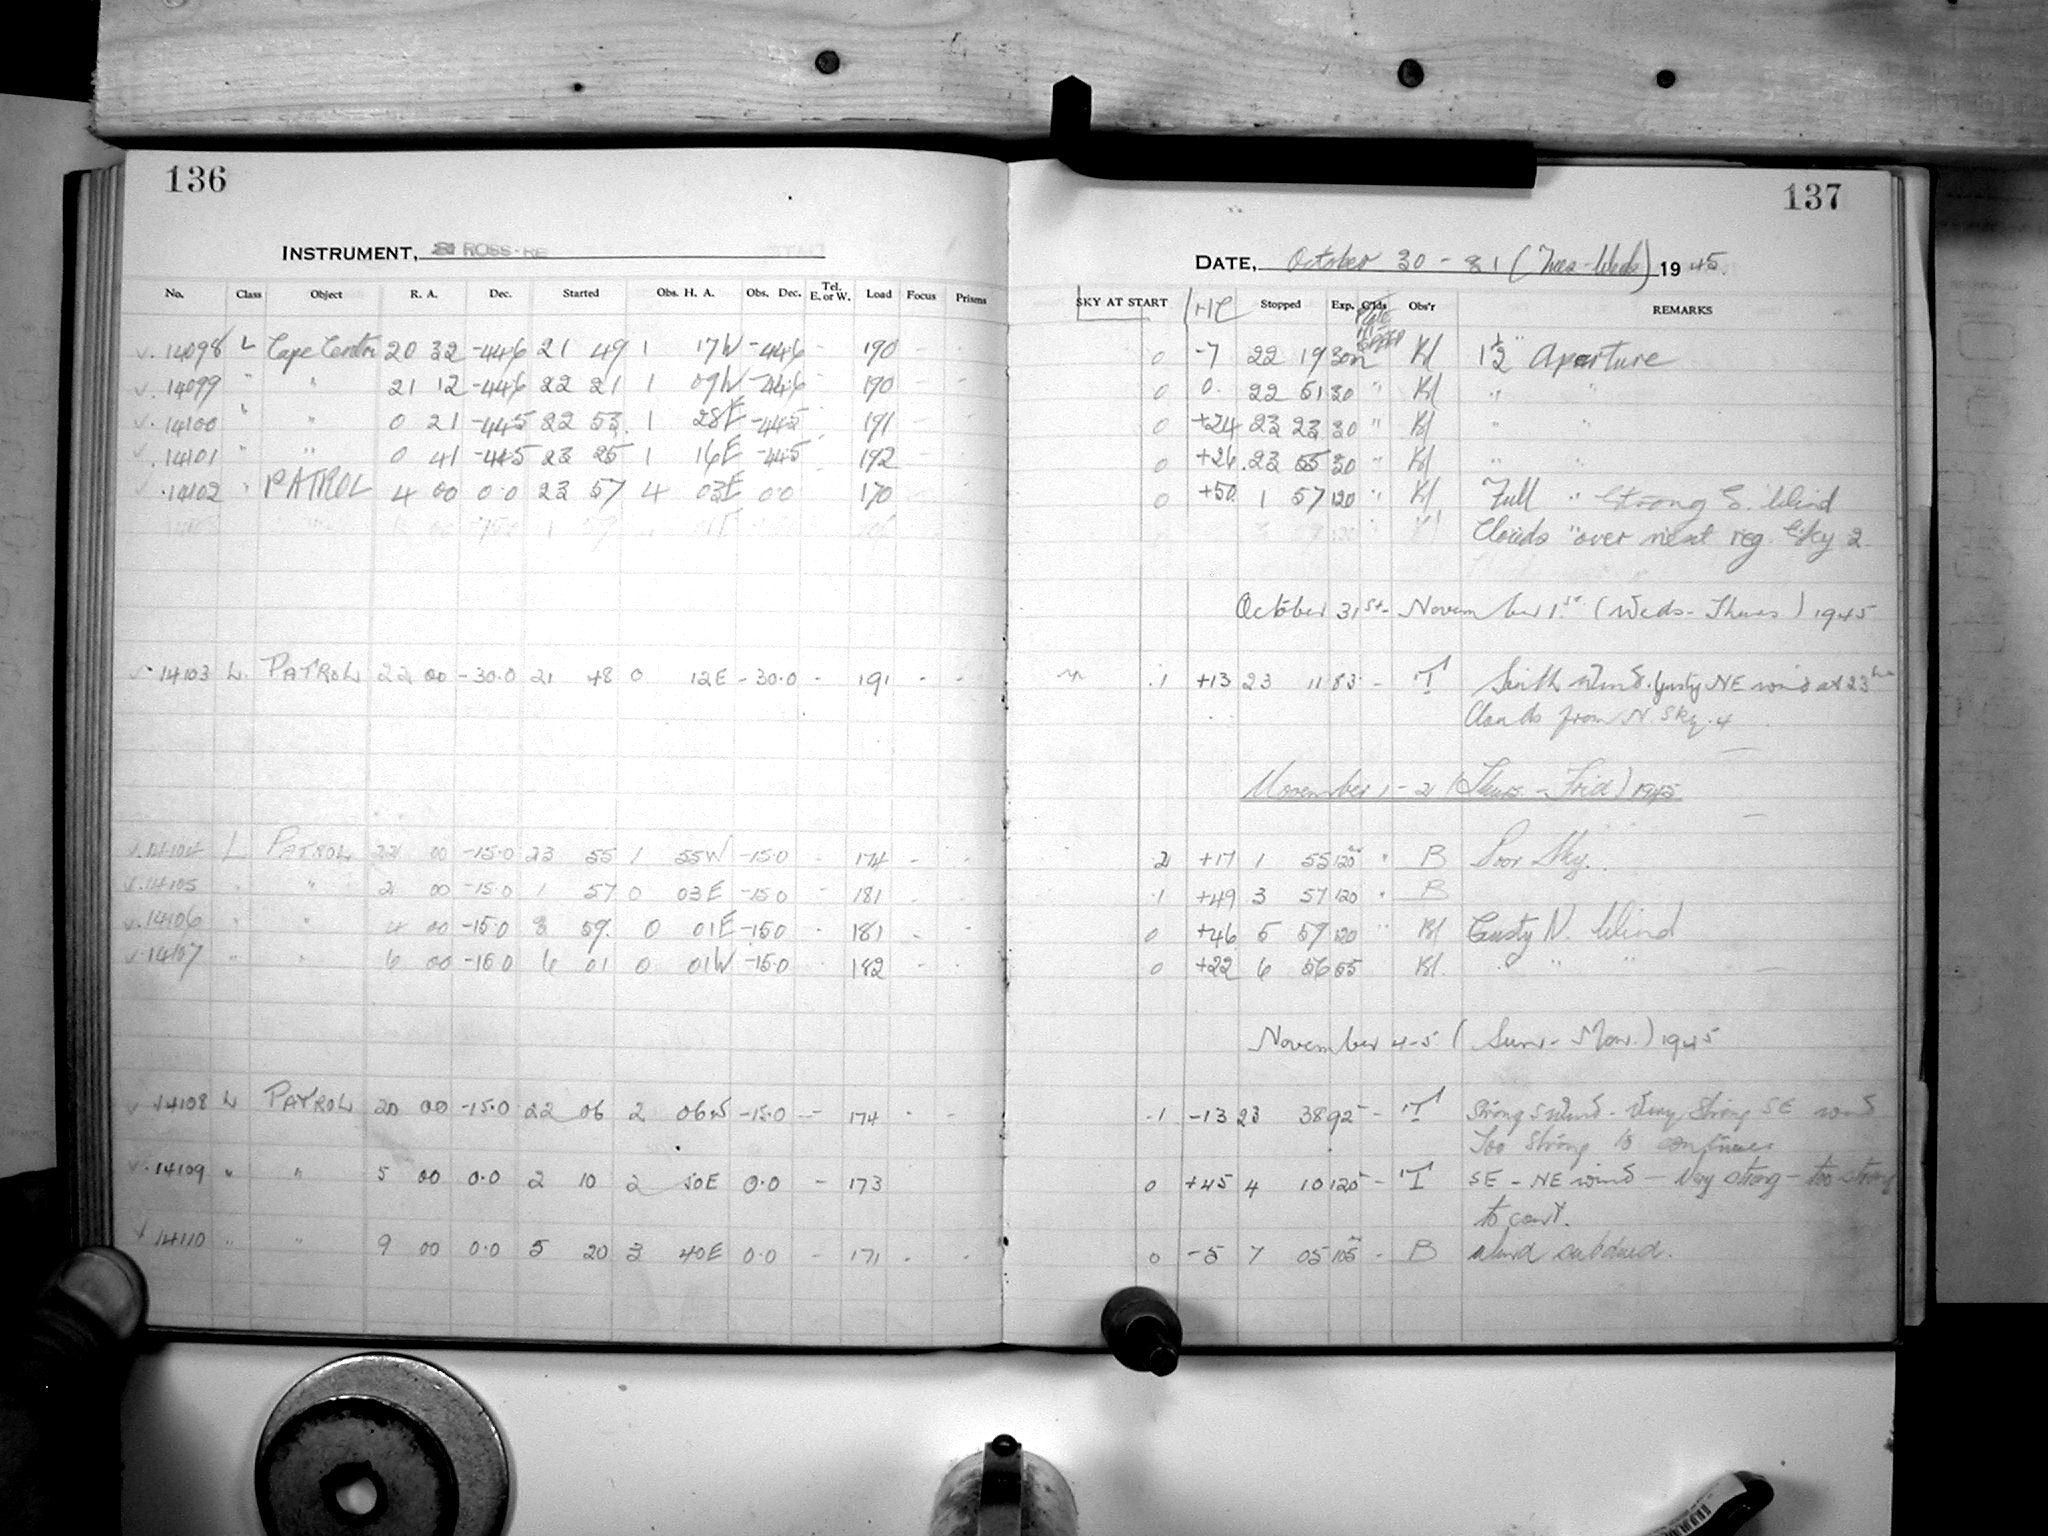 136
137
INSTRUMENT, ROSS-
DATE, October 30 - 31 (Tues-Weds) 1945
No. Class Object R. A. Dec. Started Obs. H. A. Obs. Dec. Tel. E. or W. Load Focus Prisms
SKY AT START Stopped Exp. Obs'r REMARKS
14098 L Cape Centre 20 32 -44.6 21 49 1 17W -44.6 - 190 - 0 -7 22 19 30 Kl 1½" Aperture
14099 " " 21 12 -44.6 22 21 1 09W -44.6 - 190 - - 0 0 22 51 30 " Kl " "
14100 " " 0 21 -44.5 22 53 1 28E -44.5 - 191 - - 0 +24 23 23 30 " Kl " "
14101 " " 0 41 -44.5 23 25 1 16E -44.5 - 192 - - 0 +26 23 55 30 " Kl " "
14102 " PATROL 4 00 0.0 23 57 4 03E 0.0 170 0 +50 1 57 120 " Kl Full " Strong S. Wind
Clouds over next reg. Sky 2
October 31st - November 1st (Weds-Thurs) 1945
14103 L. PATROL 22 00 -30.0 21 48 0 12E -30.0 - 191 - - .1 +13 23 11 83 - T South wind. Gusty NE wind at 23
Clouds from N. Sky. 4
November 1 - 2 (Thurs - Frid) 1945
14104 L PATROL 22 00 -15.0 23 55 1 55W -15.0 - 174 - - 2 +17 1 55 120 " B Poor Sky.
14105 " " 2 00 -15.0 1 57 0 03E -15.0 - 181 - - .1 +49 3 57 120 " B
14106 " " 4 00 -15.0 3 59 0 01E -15.0 - 181 - - 0 +46 5 59 120 " Kl Gusty N. Wind
14107 " " 6 00 -15.0 6 01 0 01W -15.0 - 182 - - 0 +22 6 56 55 Kl " " "
November 4-5 (Sun - Mon.) 1945
14108 L PATROL 20 00 -15.0 22 06 2 06W -15.0 - 174 - - .1 -13 23 38 92 - T Strong S wind - Very Strong SE wind
Too Strong to continue
14109 " " 5 00 0.0 2 10 2 50E 0.0 - 173 0 +45 4 10 120 - T SE - NE wind - Very strong - too strong
to cont.
14110 " " 9 00 0.0 5 20 3 40E 0.0 - 171 - - 0 -5 7 05 105 - B wind subdued.